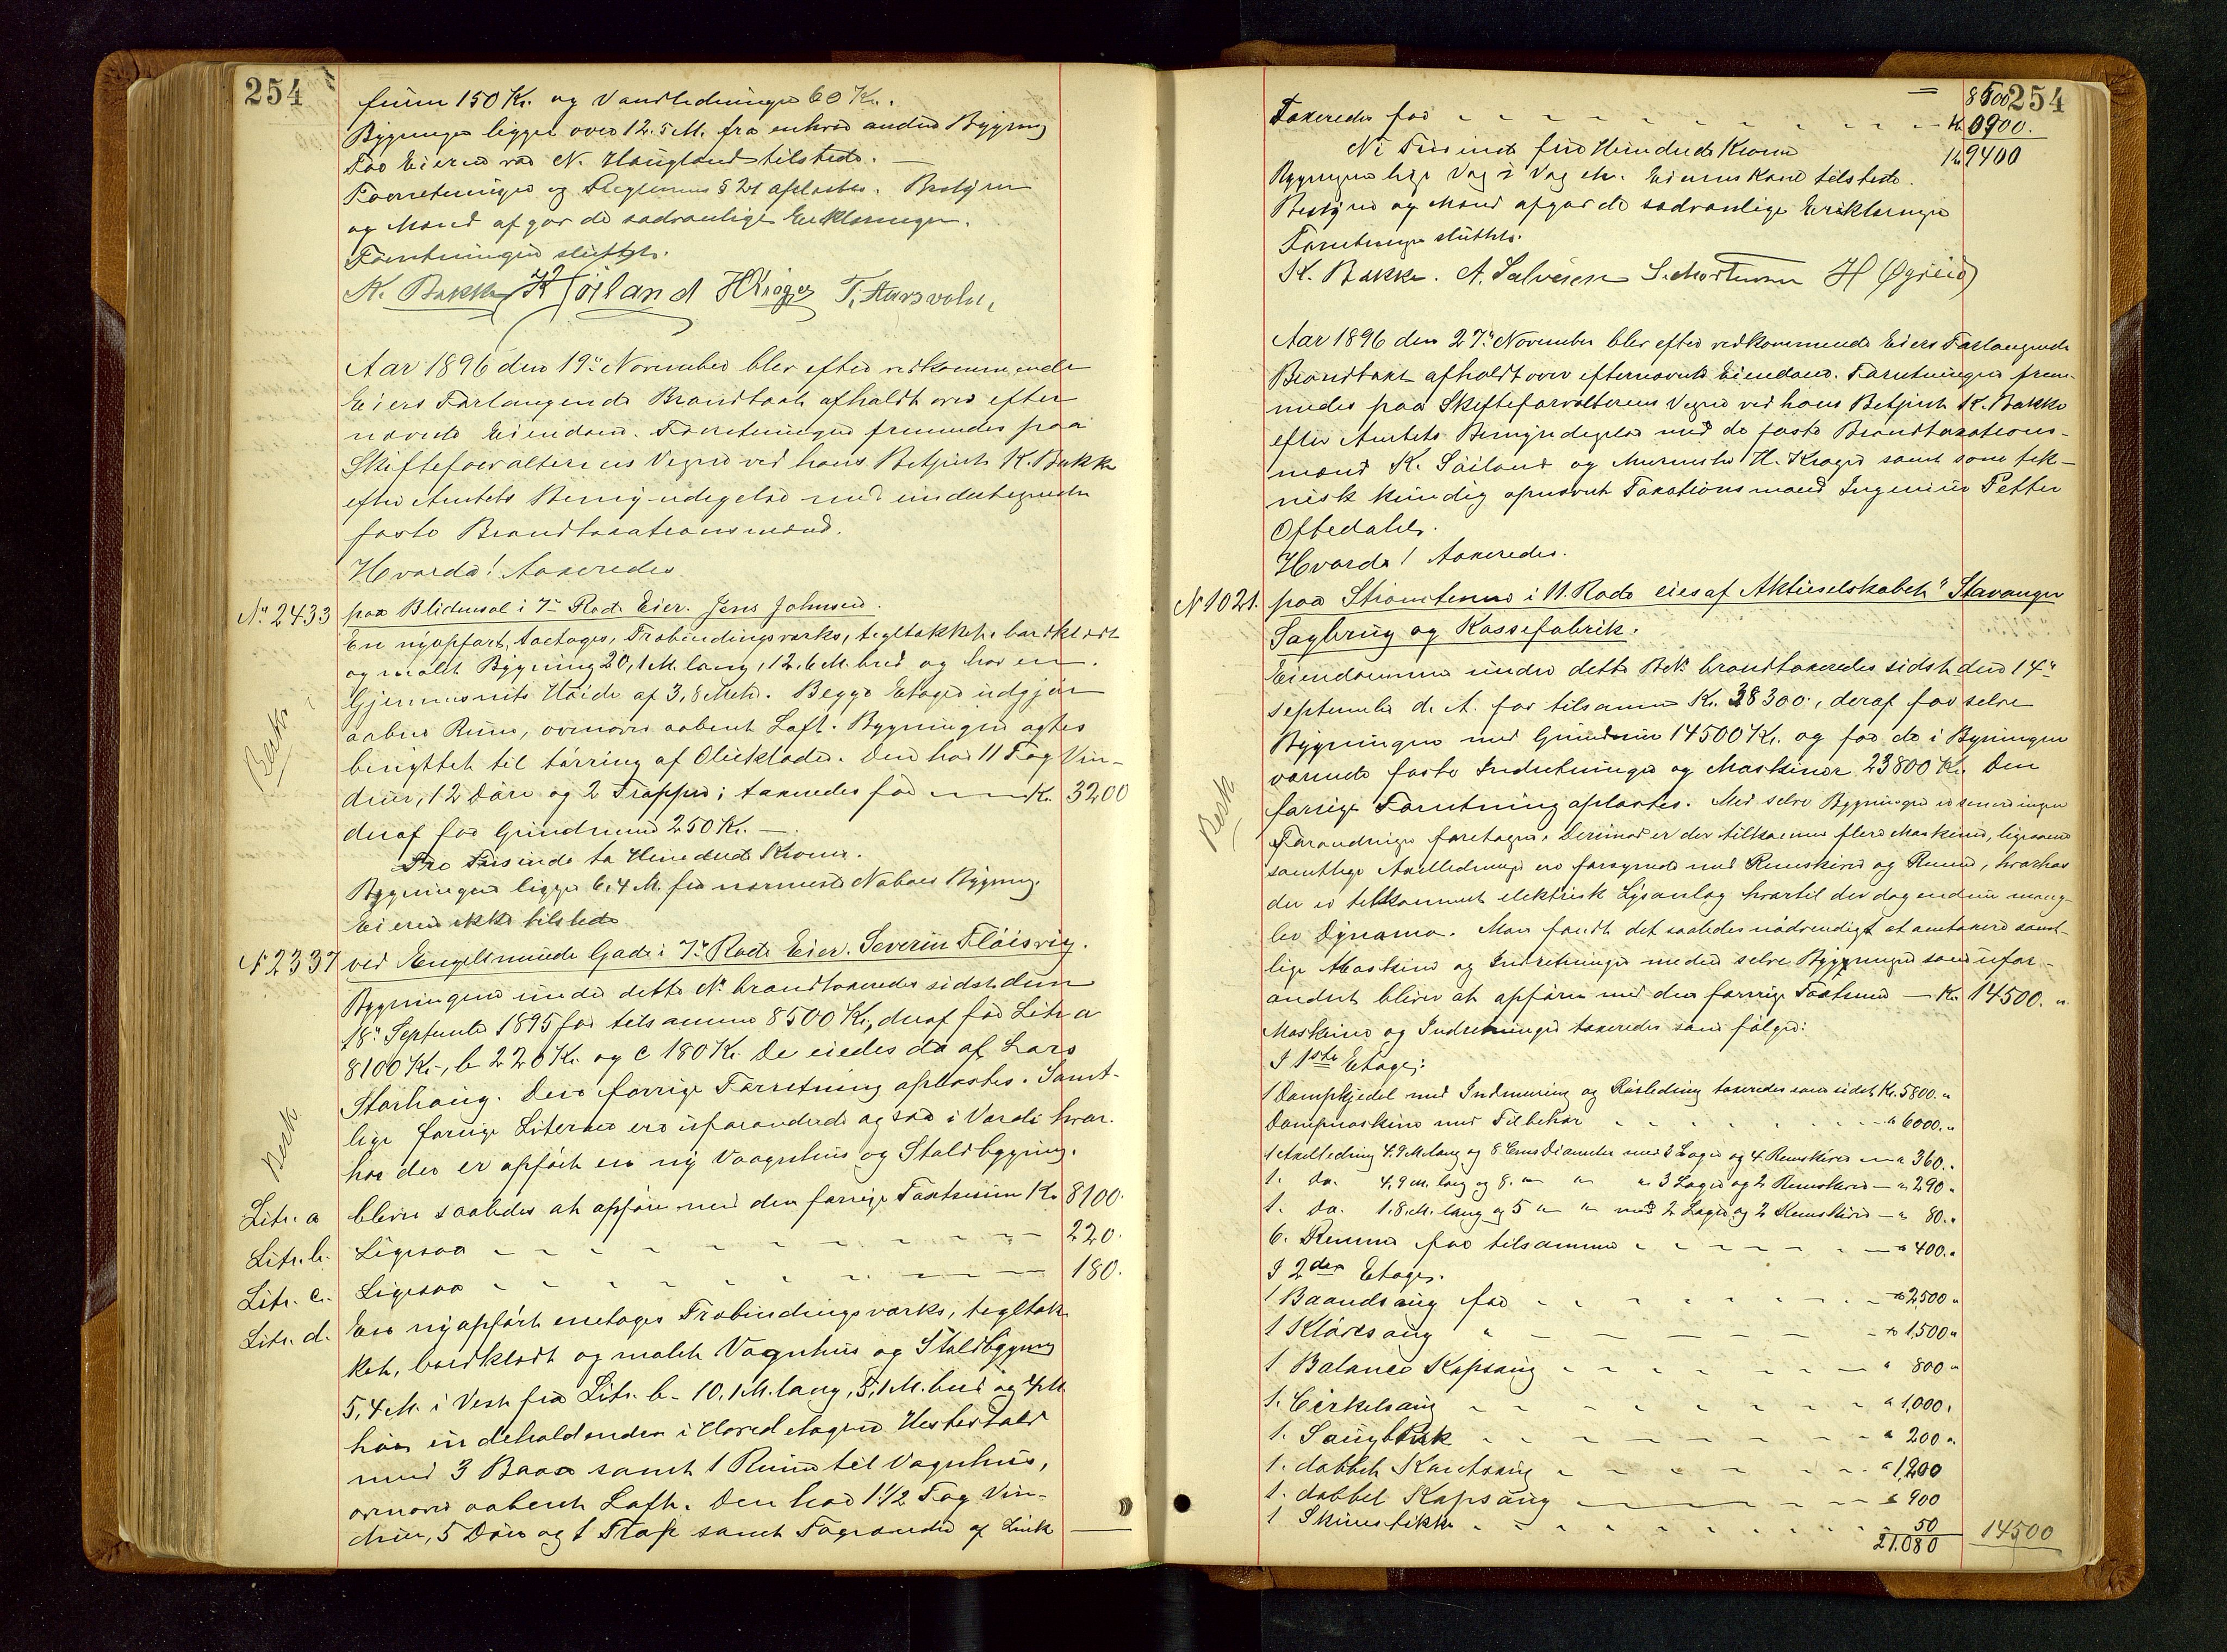 254
muren 150 Kr. og Vandledningen 60 Kr.
Bygningen ligger over 12.5 M. fra enhver anden Bygning
For Eieren var N. Haugland tilstede. —
Forretningen og Reglernes § 21 oplæstes. Bestyrer
og Mænd afgav de sædvanlige Erklæringer.
Forretningen sluttet.
K. Bakke K Höiland HKroger T. Aarsvold,
Aar 1896 den 19de November blev efter vedkommende
Eiers Forlangende Brandtaxt afholdt over efter
nævnte Eiendom. Forretningen fremmedes paa
Skifteforvalterens Vegne ved hans Betjent K. Bakke
efter Amtets Bemyndigelse med undertegnede
faste Brandtaxationsmænd.
Hvorda! Taxeredes
No 2433 paa Blidensol i 7de Rode Eier. Jens Johnsen.
En nyopført, toetages, Trebindingsværks, tegltækket, bordklædt
og malet Bygning 20,1 M. lang, 12,6 M. bred og har en
Gjennemsnits Høide af 3,8 Metr. Begge Etager udgjør
aabne Rum, ovenover aabent Loft. Bygningen agtes
benyttet til tørring af Olieklæder. Den har 11 Fag Vin-
duer, 12 Døre og 2 Trapper; taxeredes for Kr. 3200
deraf for Grundmur 250 Kr. —
Tre Tusinde to Hundrede Kroner.
Bygningen ligger 6,4 M. fra nærmeste Naboes Bygning.
Eieren ikke tilstede
Besk.
No 2337 ved Engelsminde Gade i 7de Rode Eier. Severin Fløisvig.
Bygningerne under dette No brandtaxeredes sidst den
18de September 1895 for tilsammen 8500 Kr., deraf for Litr a
8100 Kr., b 220 Kr. og c 180 Kr. De eiedes da af Lars
Storhaug. Den forrige Forretning oplæstes. Samt-
lige forrige Literaer ere uforandrede ogsaa i Værdi hvor-
hos der er opført en ny Vognhus og Staldbygning.
Besk.
Litr. a bliver saaledes at opføre med den forrige Taxtsum Kr. 8100.
Litr. b. Ligesaa 220.
Litr. c. Ligesaa 180.
Litr. d. En nyopført enetages Trebindingsværks, tegltæk-
ket, bordklædt og malet Vognhus og Staldbygning
5,4 M. i Vest fra Litr. b. 10,1 M. lang, 5,1 M. bred og 4 M.
høi indeholdende i Hovedetagen Hestestald
med 3 Baase samt 1 Rum til Vognhus,
ovenover aabent Loft. Den har 1 1/2 Fag Vin-
duer, 5 Døre og 1 Trap samt Tagrender af Zink
254
8500
Taxeredes for Kr. 0900.
Ni Tusinde fire Hundrede Kroner Kr 9400
Bygningerne ligge Væg i Væg etc. Eierens Kone tilstede.
Bestyrer og Mænd afgav de sædvanlige Erklæringer
Forretningen sluttet.
K. Bakke. A. Salvesen S. Mortensen H Øgreid
Aar 1896 den 27de November blev efter vedkommende Eiers Forlangende
Brandtaxt afholdt over efternævnte Eiendom. Forretningen frem-
medes paa Skifteforvalterens Vegne ved hans Betjent K. Bakke
efter Amtets Bemyndigelse med de faste Brandtaxations-
mænd K. Höiland og Murmester H. Kroger samt som tek-
nisk kyndig opnævnt Taxationsmand Ingeniør Petter
Oftedahl.
Hvorda! Taxeredes.
No 1021. paa Strømstenene i 11. Rode eies af Aktieselskabet "Stavanger
Sagbrug og Kassefabrik.
Eiendommen under dette B.No brandtaxeredes sidst den 14de
September d. A. for tilsammen Kr. 38300, deraf for selve
Bygningen med Grundmur 14500 Kr. og for de i Bygningen
værende faste Indretninger og Maskiner 23800 Kr. Den
forrige Forretning oplæstes. Med selve Bygningen er senere ingen
Forandringer foretagne. Derimod er der tilkommet flere Maskiner, ligesom
samtlige Axelledninger ere forsynede med Remskiver og Remme, hvorhos
der er tilkommet elektrisk Lysanlæg hvortil der dog endnu mang-
ler Dynamo. Man fandt det saaledes nødvendigt at omtaxere samt-
lige Maskiner og Indretninger medens selve Bygningen som ufor-
andret bliver at opføre med den forrige Taxtsum — Kr. 14500. "
Besk
Maskiner og Indretninger taxeredes som følger:
I 1ste Etage:
1 Dampkjedel med Indmuring og Rørledning taxeredes som sidst Kr. 5800. "
Dampmaskine med Tilbehør " 6000. "
1 Axelledning 4,9 M. lang og 8 Ctms Diameter med 3 Lager og 4 Remskiver " 360. "
1. do. 4,9 M. lang og 8. " " " 3 Lager og 2 Remskiver — " 290 "
1. do. 1.8. M. lang og 5 " " med 2 Lager og 2 Remskiver — " 80. "
6. Remme for tilsammen " 400. "
I 2den Etage.
1 Baandsaug for " 2,500 "
1 Kløvesaug " " 1,500 "
1. Balance Kapsaug " 800 "
1. Cirkelsaug " 1,000 "
1. Saugbænk " 200 "
1. dobbelt Kantsaug " 1,200
1. dobbel Kapsaug " 900
1 Skinestikke 50
21.080 14500